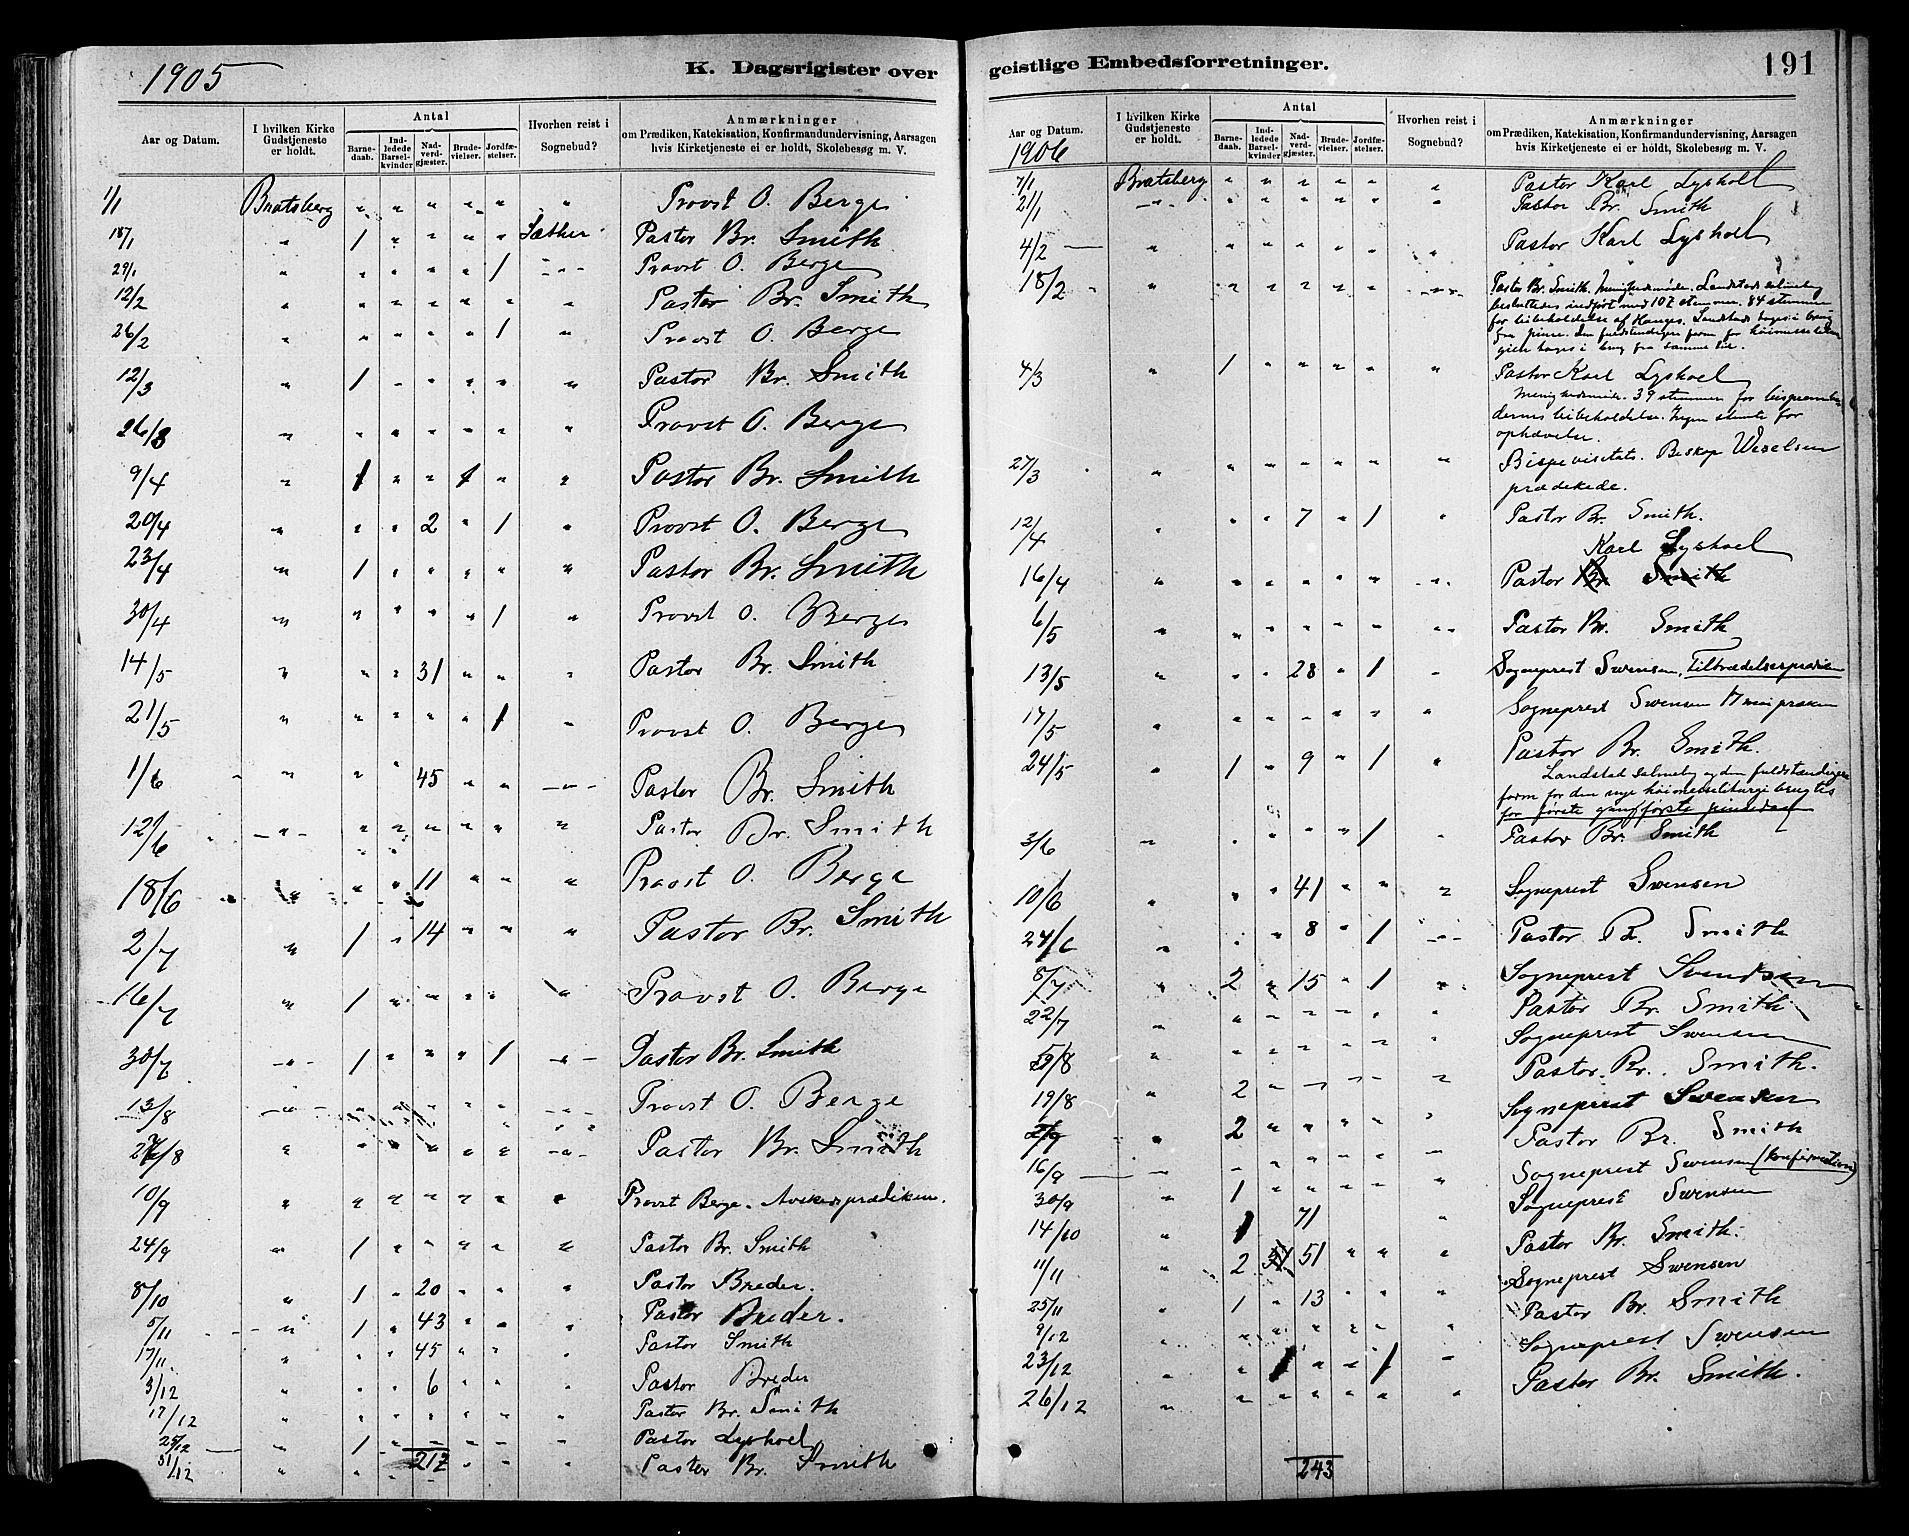 1905 K. Dagsrigister over
Antal
Aar og Datum. I hvilken Kirke Gudstjeneste er holdt. Barnedaab. Indledede Barselkvinder Nadverdgjæster. Brudevielser. Jordfæstelser. Hvorhen reist i Sognebud? Anmærkninger om Prædiken, Katekisation, Konfirmandundervisning, Aarsagen hvis Kirketjeneste ei er holdt, Skolebesøg m. V.
1/1 Bratsberg " " " " " " Provst O. Berge
" 1 " " " " Sæther Pastor Br. Smith
29/1 " " " " " 1 " Provst O. Berge
12/2 " " " " " " " Pastor Br. Smith
26/2 " " " " " 1 " Provst O. Berge
12/3 " 1 " " " " " Pastor Br. Smith
26/3 " " " " " " " Provst O. Berge
9/4 " 1 " " 1 " " Pastor Br. Smith
20/4 " " " 2 " 1 " Provst O. Berge
23/4 " 1 " " " " " Pastor Br. Smith
30/4 " " " " " 1 " Provst O. Berge
14/5 " " " 31 " " " Pastor Br. Smith
21/5 " " " " " 1 " Provst O. Berge
1/6 " " " 45 " " " Pastor Br. Smith
12/6 " " " " " " " Pastor Br. Smith
18/6 " " " 11 " " " Provst O. Berge
2/7 " 1 " 14 " " " Pastor Br. Smith
16/7 " 1 " " " " " Provst O. Berge
30/7 " 1 " " " 1 " Pastor Br. Smith
13/8 " " " " " " " Provst O. Berge
27/8 " " " " " " " Pastor Br. Smith
10/9 " " " " " " " Provst Berge. Avskedsprædiken.
24/9 " 1 " " " " " Pastor Br. Smith
8/10 " 1 " 20 " " " Pastor Breder.
5/11 " 1 " 43 " " " Pastor Breder.
17/11. " " " 45 " " " Pastor Smith
3/12 " " " 6 " " " Pastor Breder
17/12 " " " " " " " Pastor Br. Smith
25/12 " 1 " " " " " Pastor Lysholm
31/12 " " " 217 " " " Pastor Br. Smith
geistlige Embedsforretninger. 191
Antal
Aar og Datum. I hvilken Kirke Gudstjeneste er holdt. Barnedaab. Indledede Barselkvinder Nadverdgjæster. Brudevielser. Jordfæstelser. Hvorhen reist i Sognebud? Anmærkninger om Prædiken, Katekisation, Konfirmandundervisning, Aarsagen hvis Kirketjeneste ei er holdt, Skolebesøg m. V.
1906
7/1 Bratsberg " " " " " " Pastor Karl Lysholm
21/1 " " " " " " " Pastor Br. Smith
4/2 " " " " " " " Pastor Karl Lysholm
18/2 " " " " " " " Pastor Br. Smith. Menighedsmøde. Landstads salmebog
besluttedes indført med 107 stemmer. 84 stemmer
for bibeholdelse af Hauges. Landstads tages i brug
fra pinse. Den fuldstændigere form for høimesselitur-
gien tages i brug fra samme tid.
4/3 " 1 " " " " " Pastor Karl Lysholm
Menighedsmøde. 39 stemmer for bispeembe-
dernes bibeholdelse. Ingen stemte for
ophævelse.
27/3 " " " " " " " Bispevisitats. Biskop Wexelsen
prædikede.
12/4 " " " 7 " 1 " Pastor Br. Smith.
Karl Lysholm
16/4 " " " " " " " Pastor Br Smith
6/5 " " " " " " " Pastor Br. Smith
13/5 " " " 28 " 1 " Sogneprest Swensen, Tiltrædelsespræken
17/5 " " " " " " " Sogneprest Swensen
24/5 " 1 " 9 " 1 " Pastor Br. Smith.
Landstad salmebog og den fuldstændigere
form for den nye høimesseliturgi brugtes
for første gang første pinsedag
3/6 " " " " " 1 " Pastor Br. Smith
10/6 " " " 41 " " " Sogneprest Swensen
24/6 " " " 8 " 1 " Pastor Br. Smith
8/7 " 2 " 15 " 1 " Sogneprest Svendsen
22/7 " " " " " " " Pastor Br. Smith
5/8 " " " " " " " Sogneprest Swensen
19/8 " 2 " " " " " Pastor. Br. Smith.
2/9 " 2 " " " " " Sogneprest Swensen
Pastor Br. Smith
16/9 " " " " " " " Sogneprest Swensen (Konfirmation)
30/9 " 1 " " " " " Sogneprest Swensen
14/10 " 1 71 " Pastor Br. Smith.
11/11 " 2 51 51 " " " Sogneprest Swensen
25/11 " 1 " 13 " " " Pastor Br. Smith
9/12 " " " " " " " Sogneprest Swensen
23/12 " " 1 " " 1 " Pastor Br. Smith.
26/12 " " " " " " "
243